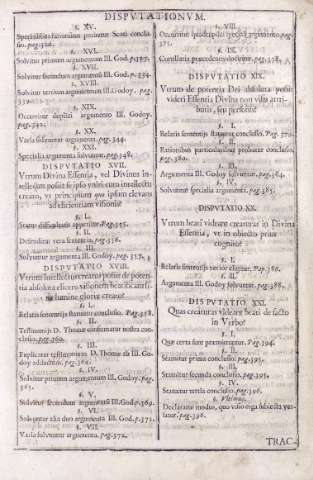 DISPUTATIONUM.
§. XV.
Specialissima rationibus probatur Scoti conclu-
sio. pag.326.
§. XVI.
Solvitur primum argumentum Ill. God. p.327.
§. XVII.
Solvitur secundum argumentũ Ill. God. p.334.
§. XVIII.
Solvitur tertium argumentum Ill. Godoy. pag.
339.
§. XIX.
Occurritur duplici argumento Ill. Godoy.
pag.342.
§. XX.
Varia solvuntur argumenta. pag.344.
§. XXI.
Specialia argumenta solvuntur. pag.348.
DISPUTATIO XVII.
Utrum Divina Essentia, vel Divinus in-
tellectus possit se ipso uniri cum intellectu
creato, ut principium quo ipsum elevans
ad eliciendam visionem?
§. I.
Status difficultatis appetitur. pag.355.
§. II.
Defenditur vera sententia. pag.356.
§. III.
Solvuntur argumenta Ill. Godoy. pag.357.
DISPUTATIO XVIII.
Utrum Intellectus creatus possit de poten-
tia absoluta elicere visionem beatificam si-
ne lumine gloriæ creato?
§. I.
Relatis sententijs statuitur conclusio. Pag.358.
§. II.
Testimonijs D. Thomæ confirmatur nostra con-
clusio. pag.360.
§. III.
Explicatur testimonium D. Thomæ ab Ill. Go-
doy adductum. pag.362.
§. IV.
Solvitur primum argumentum Ill. Godoy. pag.
365.
§. V.
Solvitur secundum argumentũ Ill. God. p.369.
§. VI.
Solvuntur alia duo argumenta Ill. God. p.371.
§. VII.
Varia solvuntur argumenta. pag.372.
§. VIII.
Occurritur quadruplici argumento. pag.
375.
§. IX.
Corollaria præcedentis doctrinæ. pag.378.
DISPUTATIO XIX.
Utrum de potentia Dei absoluta possit
videri Essentia Divina non visis attri-
butis, seu personis?
§. I.
Relatis sententijs statuitur conclusio. Pag.379.
§. II.
Rationibus particularibus probatur conclusio.
pag.380.
§. III.
Argumenta Ill. Godoy solvuntur. pag.384.
§. IV.
Solvuntur specialia argumenta. pag.385.
DISPUTATIO XX.
Utrum beati videant creaturas in Divina
Essentia, ut in obiecto prius
cognito?
§. I.
Relatis sententijs verior eligitur. Pag.386.
§. II.
Argumenta Ill. Godoy solvuntur. pag.388.
DISPUTATIO XXI.
Quas creaturas videant beati de facto
in Verbo?
§. I.
Quæ certa sunt præmittuntur. Pag.394.
§. II.
Statuitur prima conclusio. pag.395.
§. III.
Statuitur secunda conclusio. pag.395.
§. IV.
Statuitur tertia conclusio. pag.396.
§. Ultimus.
Declaratur modus, quo visio erga subiecta
pag.396.
TRAC-